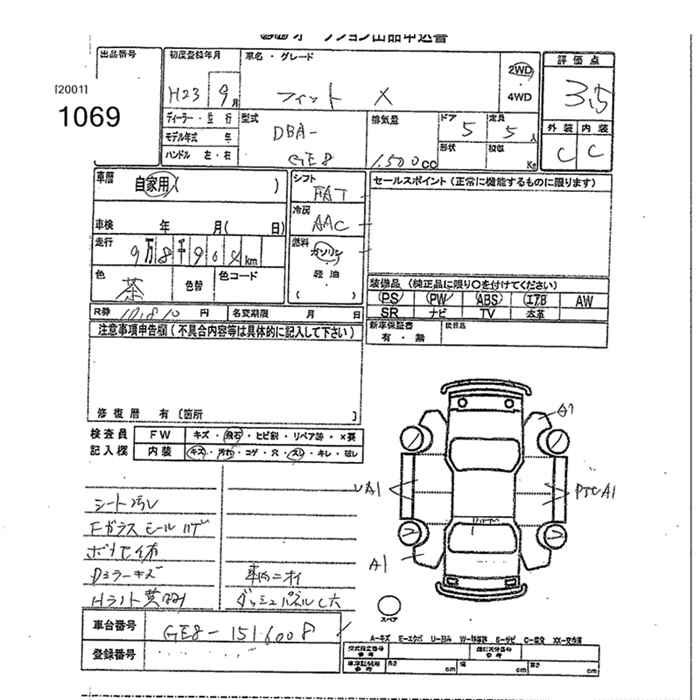 オークション出品申込書
出品番号
[2001]
1069
初度登録年月
H23 9月
車名・グレード
フィット X
2WD
4WD
評価点
3.5
外装 内装
C C
ディーラー・並行
モデル年式 年
ハンドル 左・右
型式
DBA-
GE8
排気量
1,500cc
ドア 5
形状
定員 5人
積載 Kg
車歴 自家用( )
車検 年 月( 日)
走行 9万8千90 km
色 茶
色替
色コード
シフト
FAT
冷房
AAC
燃料
ガソリン
軽油
( )
セールスポイント(正常に機能するものに限ります)
装備品 (純正品に限り〇を付けてください)
PS PW ABS エアB AW
SR ナビ TV 本革
新車保証書
有・無
後日品
R券 10,810円
名変期限 月 日
注意事項申告欄(不具合内容等は具体的に記入して下さい)
修復歴 有〔箇所 〕
検査員 FW キズ・飛石・ヒビ割・リペア跡・×要
記入欄 内装 キズ・汚れ・コゲ・穴・スレ・キレ・破レ
シート汚レ
Fガラスモールハゲ
Dミラーキズ
Hライト黄
車内ニオイ
ダッシュパネルビス穴
A1
UA1
A1
スペア
A-キズ E-エクボ U-凹み S-サビ C-腐食 XX-交換済
車台番号 GE8-1516008
登録番号
長さ cm 幅 cm 高さ cm